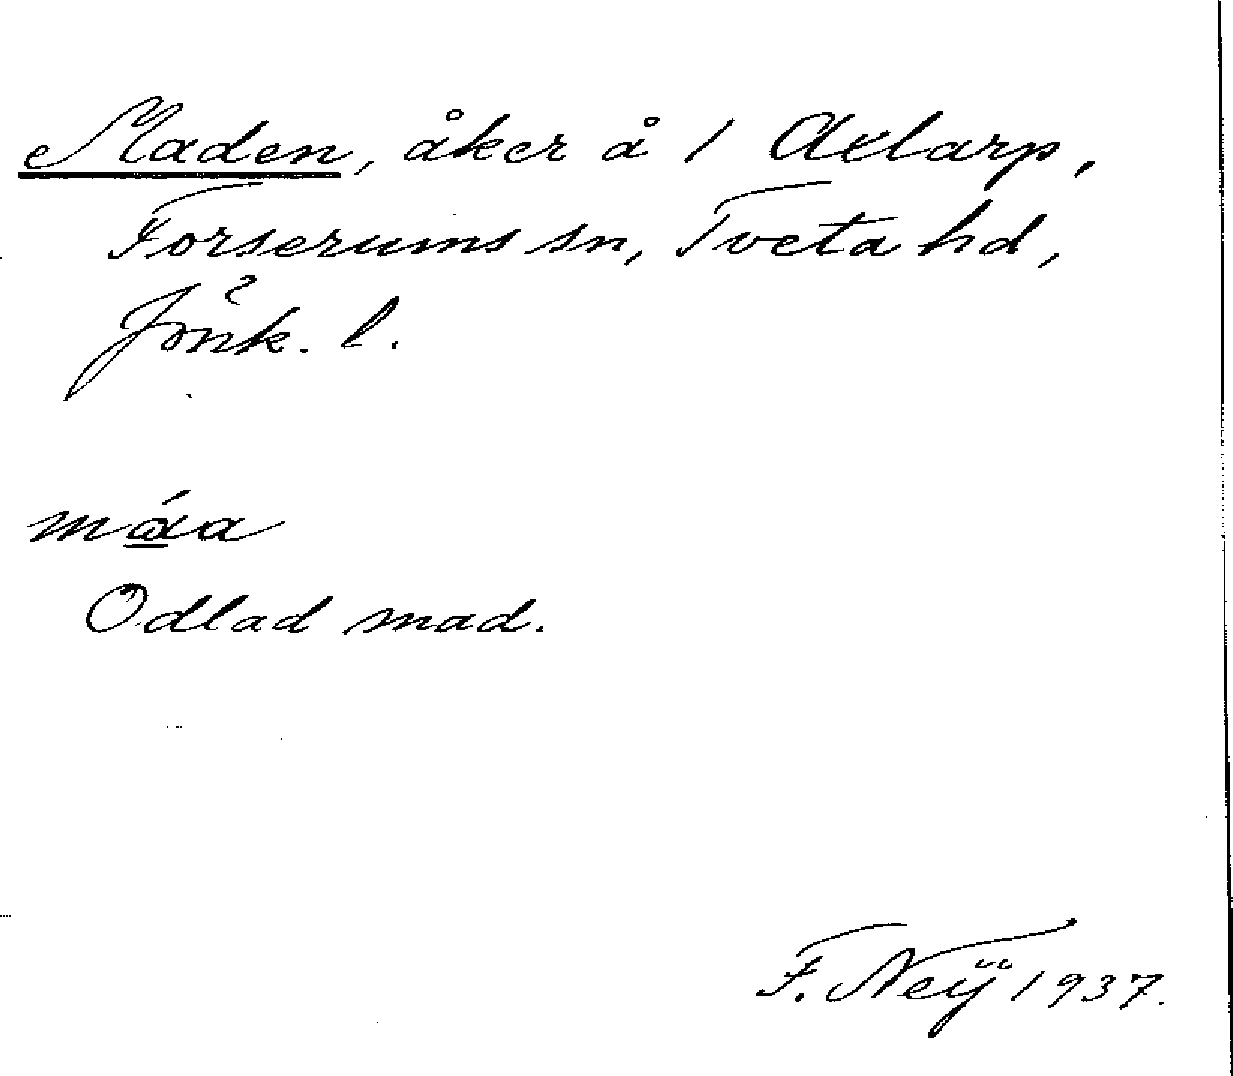 Maden, åker å 1 Axlarp,
Forserums sn, Tveta hd,
Jönk. l.
máa
Odlad mad.
F. Neÿ 1937.